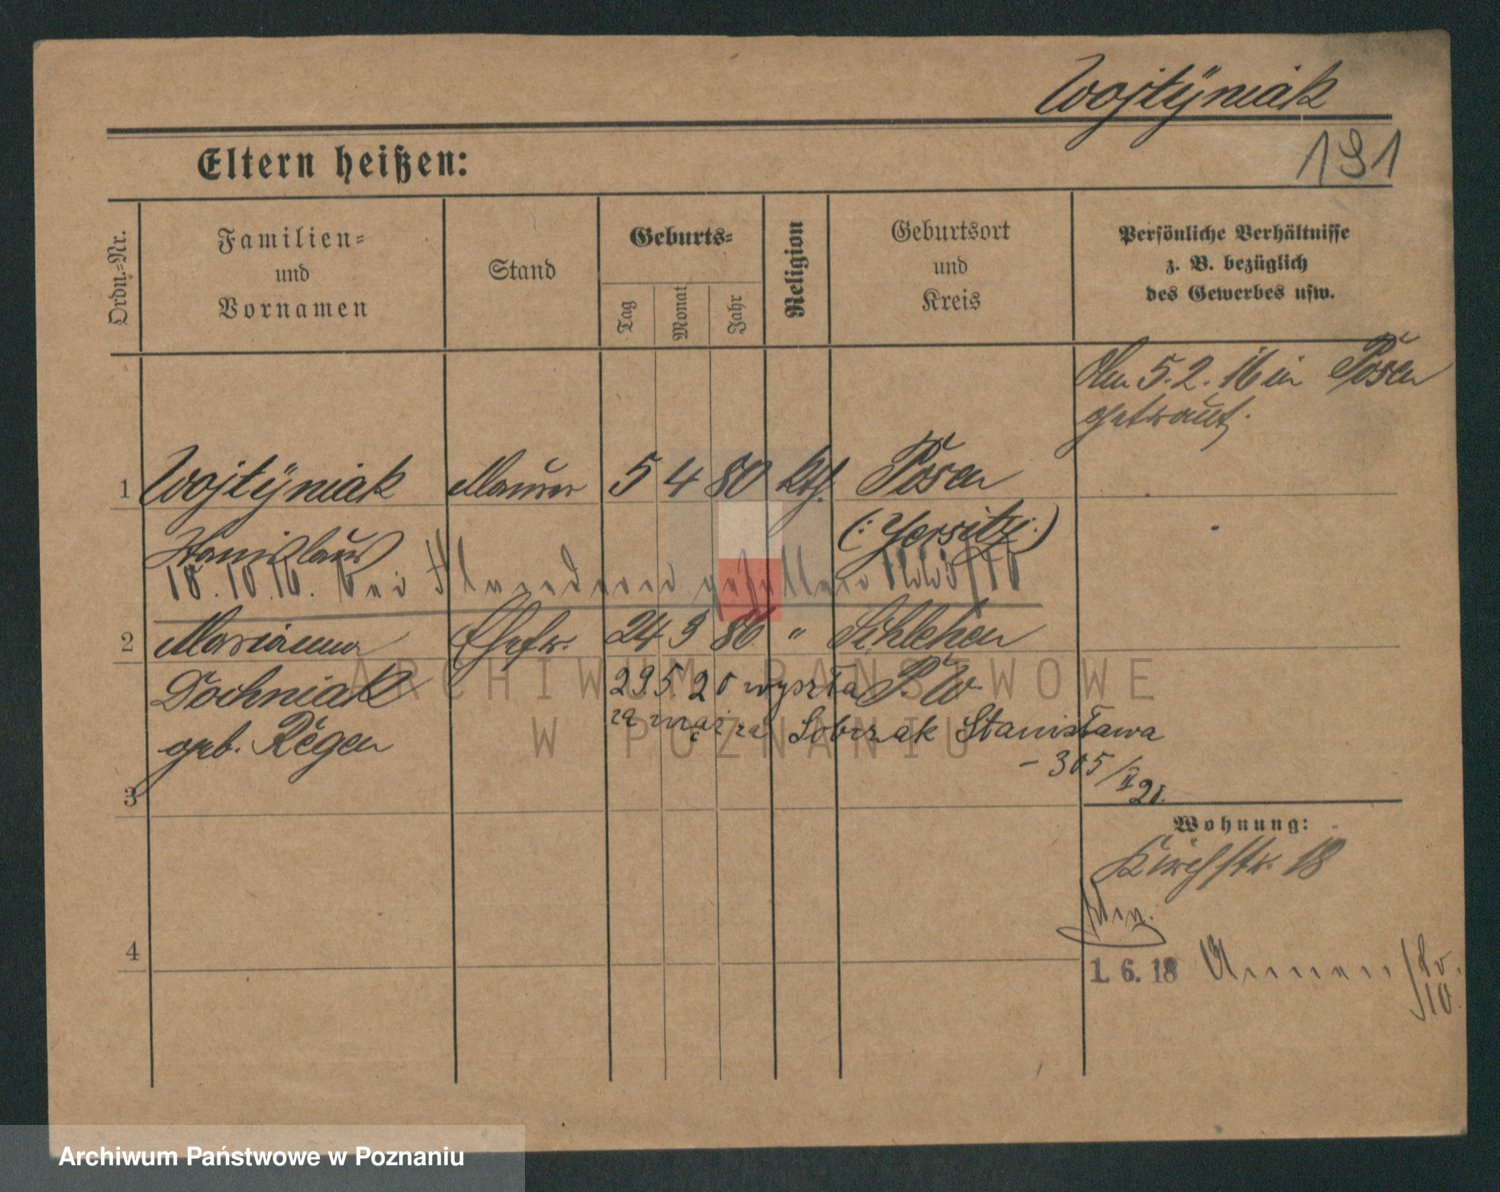 Wojtÿniak
191
Eltern heißen:
Ordn.-Nr.
Familien-
und
Vornamen
Stand
Geburts-
Tag
Monat
Jahr
Religion
Geburtsort
und
Kreis
Persönliche Verhältnisse
z. B. bezüglich
des Gewerbes usw.
Am 5.2.16 in Posen
getraut.
1 Wojtÿniak Maurer 5 4 80 kth. Posen
Stanislaus (: Jersitz :)
18.10.16. bei gefallen
2 Marianna Ehefr. 24 3 86 "
Dochniak 29 5 20 wyszła P. W
geb. Regen za mąż za Sobczak Stanisława
- 305/II 20.
3
Wohnung:
Kirchstr. 18
4
1. 6. 18
ARCHIWUM PAŃSTWOWE
W POZNANIU
Archiwum Państwowe w Poznaniu